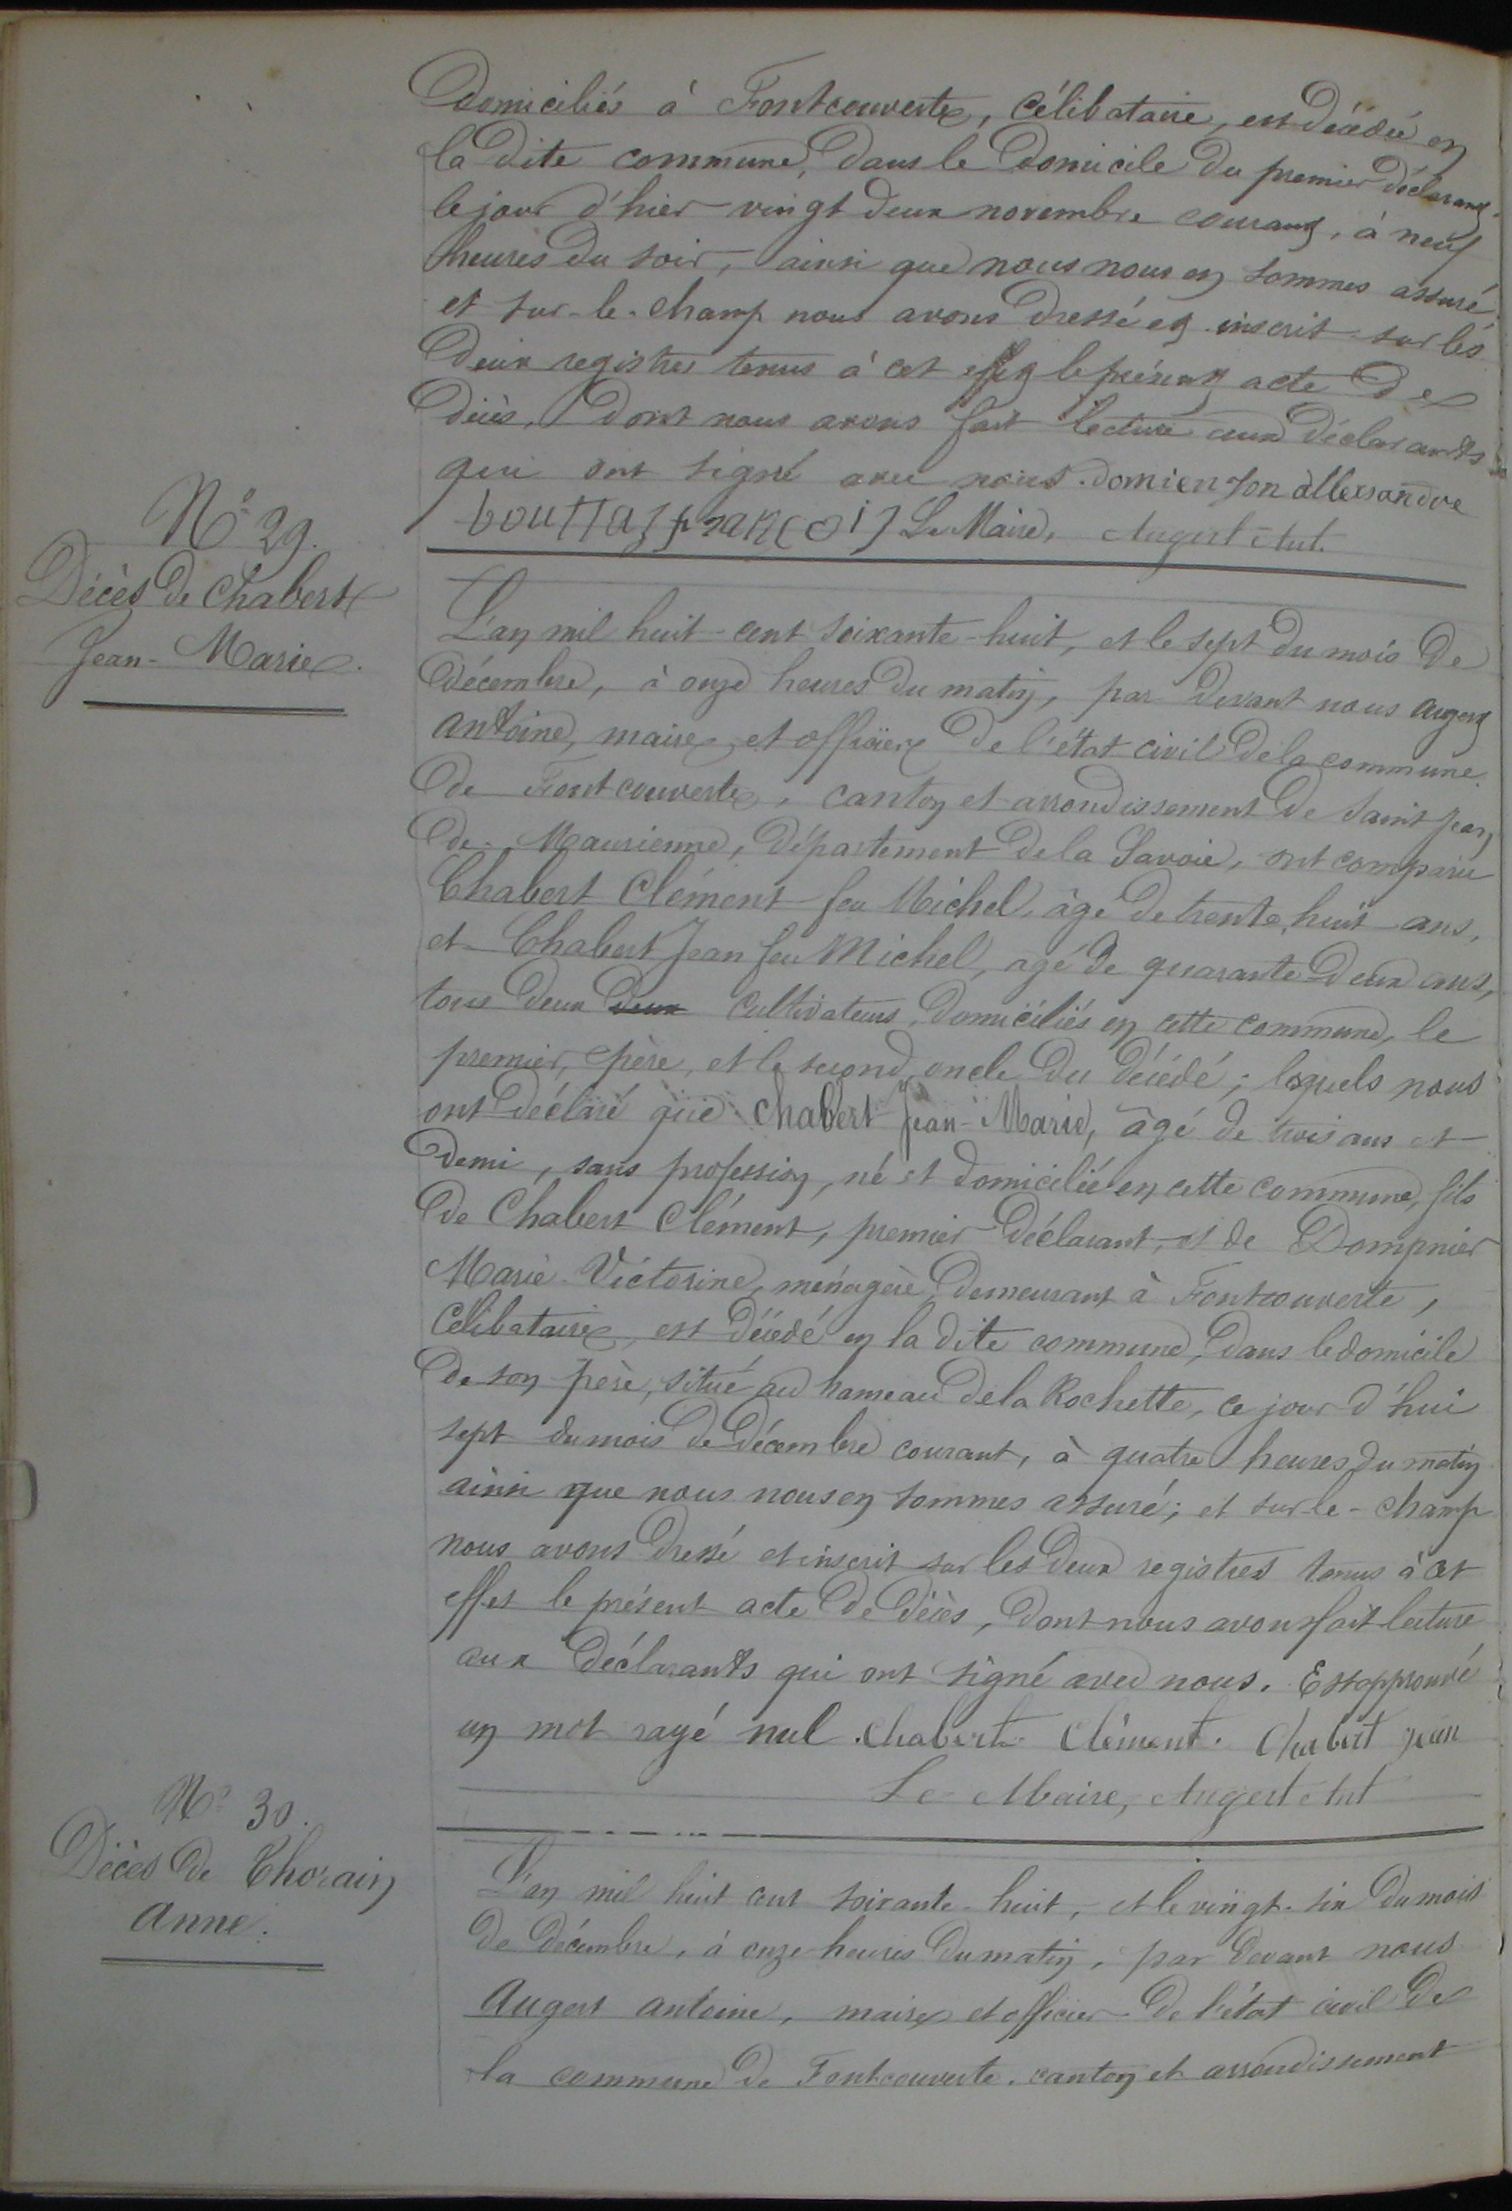 Domiciliés à Fontcouverte, Célibataire, est décédé en
la dite commune, dans le domicile du premier déclarant
le jour d'hier vingt deux novembre courant, à neuf
heures du soir, ainsi que nous nous en sommes assuré,
et sur-le-champ nous avons dressé et inscrit sur les
deux registres tenus à cet effet le présent acte de
décès, dont nous avons fait lecture aux déclarants
qui ont signé avec nous. domien son allexandre
bouttaz francois Le Maire, Augert Ant.
N° 29.
Décès de Chabert
Jean-Marie.
L'an mil huit-cent soixante-huit, et le sept du mois de
décembre, à onze heures du matin, par devant nous augert
antoine, maire, et officier de l'état civil de la commune
de Fontcouverte, canton et arrondissement de Saint Jean
de Maurienne, département de la Savoie, ont comparu
Chabert Clément feu Michel, âgé de trente huit ans,
et Chabert Jean feu Michel, agé de quarante deux ans,
tous deux deux cultivateurs, domiciliés en cette commune, le
premier, père, et le second, oncle du décédé; lesquels nous
ont déclaré que Chabert Jean-Marie, âgé de trois ans et
demi, sans profession, né et domicilié en cette commune, fils
de Chabert Clément, premier déclarant, et de Dompnier
Marie Victorine, ménagère, demeurant à Fontcouverte,
Célibataire, est décédé en la dite commune, dans le domicile
de son père, situé au hameau de la Rochette, ce jour d'hui
sept du mois de décembre courant, à quatre heures du matin
ainsi que nous nous en sommes assuré; et sur-le-champ
nous avons dressé et inscrit sur les deux registres tenus à cet
effet le présent acte de décès, dont nous avons fait lecture
aux déclarants qui ont signé avec nous. Est approuvé
un mot rayé nul. Chabert Clément. Chabert jean
Le Maire, Augert Ant
N° 30.
Décès de Thorain
Anne.
L'an mil huit cent soixante-huit, et le vingt-six du mois
de décembre, à onze heures du matin, par devant nous
Augert antoine, maire et officier de l'état civil de
la commune de Fontcouverte, canton et arrondissement